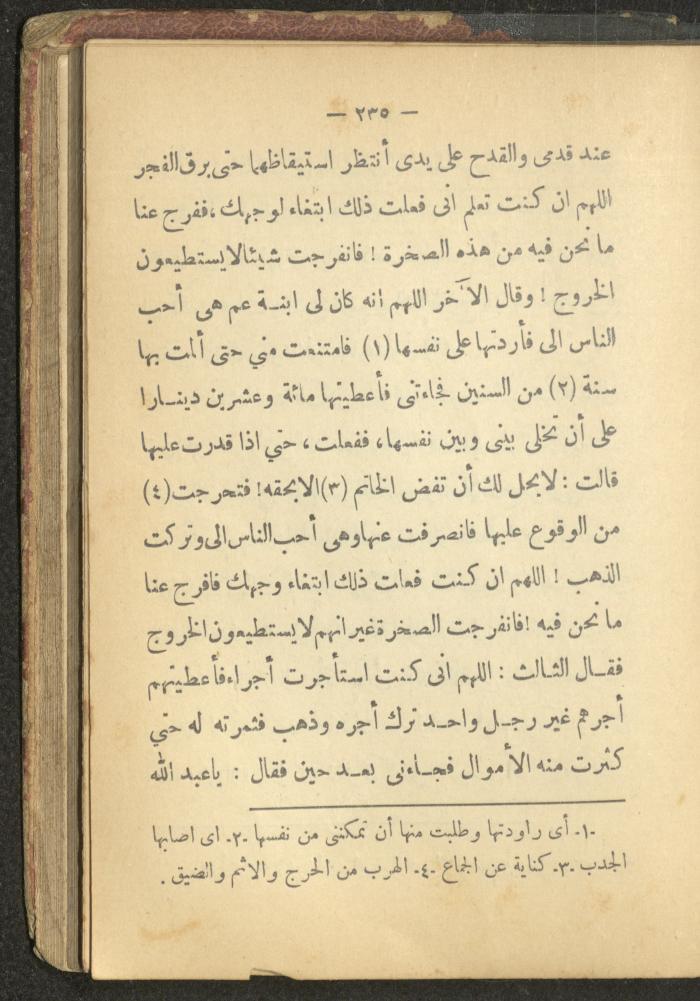 — ٢٣٥ —
عند قدمى والقدح على يدى أنتظر استيقاظهما حتى برق الفجر
اللهم ان كنت تعلم انى فعلت ذلك ابتغاء لوجهك ،ففرج عنا
ما نحن فيه من هذه الصخرة ! فانفرجت شيئا لا يستطيعون
الخروج ! وقال الآخر اللهم انه كان لى ابنة عم هى أحب
الناس الى فأردتها على نفسها (١) فامتنعت مني حتى ألمت بها
سنة (٢) من السنين فجاءتنى فأعطيتها مائة وعشرين دينارا
على أن تخلى بينى وبين نفسها، ففعلت ، حتي اذا قدرت عليها
قالت : لايحل لك أن تفض الخاتم (٣) الا بحقه! فتحرجت (٤)
من الوقوع عليها فانصرفت عنها وهى أحب الناس الى وتركت
الذهب ! اللهم ان كنت فعلت ذلك ابتغاء وجهك فافرج عنا
ما نحن فيه !فانفرجت الصخرة غير انهم لا يستطيعون الخروج
فقال الثالث : اللهم انى كنت استأجرت أجراء فأعطيتهم
أجرهم غير رجل واحد ترك أجره وذهب فثمرته له حتي
كثرت منه الأموال فجاءنى بعد حين فقال : ياعبد الله
-١- أى راودتها وطلبت منها أن تمكننى من نفسها -٢- اى اصابها
الجدب -٣- كناية عن الجماع -٤- الهرب من الحرج والاثم والضيق .